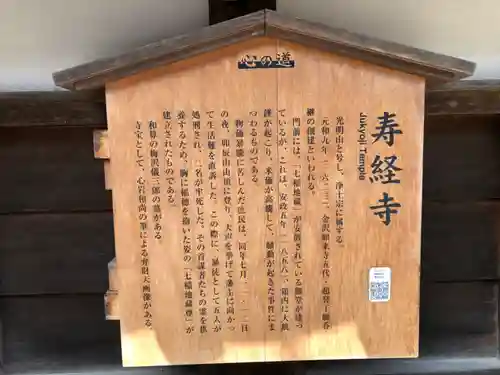 心の道
寿経寺
Jukyoji Temple
光明山と号し、浄土宗に属する。
元和九年（一六二三）、金沢願来寺五代・超誉上綱呑
継の創建といわれる。
門前には、「七稲地蔵」が安置されている御堂が建っ
ているが、これは、安政五年（一八五八）、領内に大飢
饉が起こり、米価が高騰して、騒動が起きた事実にま
つわるものである。
物価暴騰に苦しんだ庶民は、同年七月一一、一二日
の夜、卯辰山山頂に登り、大声を挙げて藩主に向かっ
て生活難を訴えた。この際に、暴徒として五人が
処刑され、二名が牢死した。その首謀者たちの霊を供
養するため、胸に稲穂を抱いた姿の「七稲地蔵尊」が
建立されたものである。
和算の梅沢儀三郎の墓がある
寺宝として、心岩和尚の筆による寺財天画像がある。